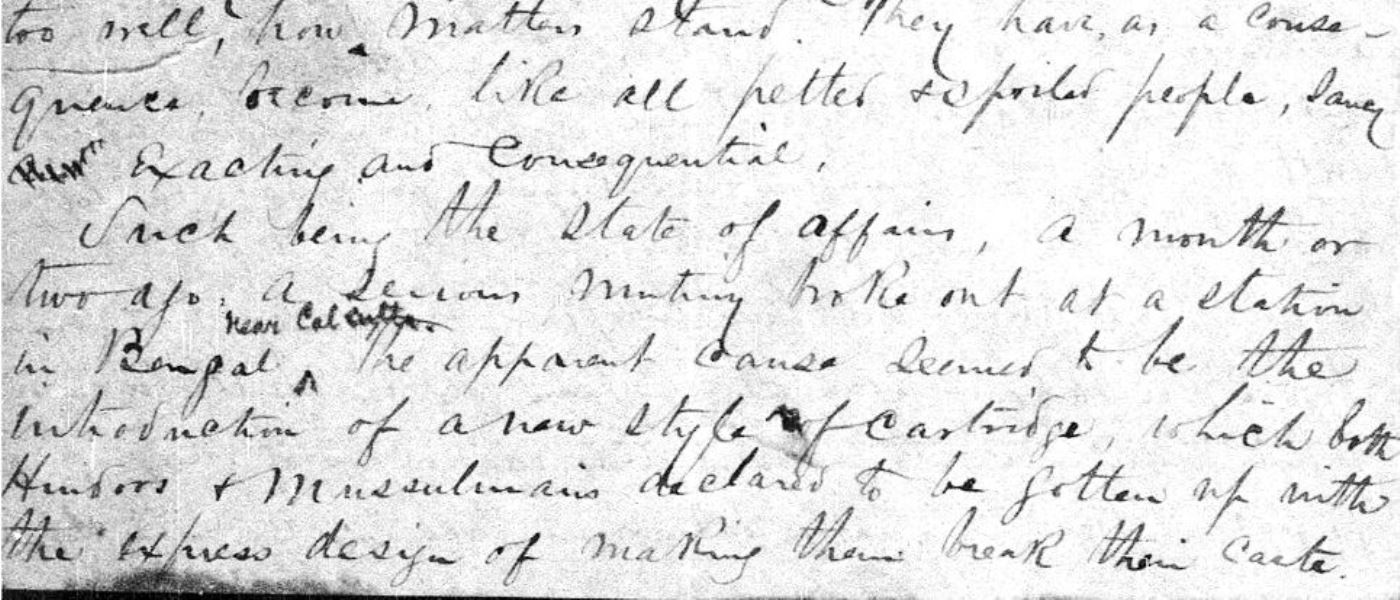 too well, how matters stand. They have, as a conse-
quence, become, like all petted & spoiled people, saucy
Exacting and Consequential.
Such being the state of affairs, a month or
two ago, a serious mutiny broke out at a station
near Calcutta.
in Bengal ^ The apparent cause seemed to be the
introduction of a new style of cartridge, which both
Hindoos & Mussulmans declared to be gotten up with
the express design of making them break their caste.